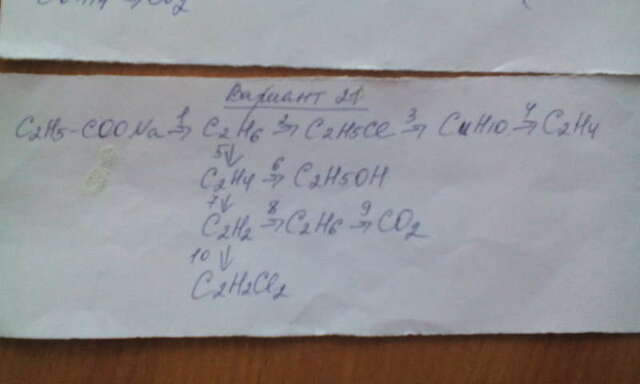 CO2
Вариант 21
C2H5-COONa 1→ C2H6 2→ C2H5Cl 3→ C4H10 4→ C2H4
5↓
C2H4 6→ C2H5OH
7↓
C2H2 8→ C2H6 9→ CO2
10↓
C2H2Cl2